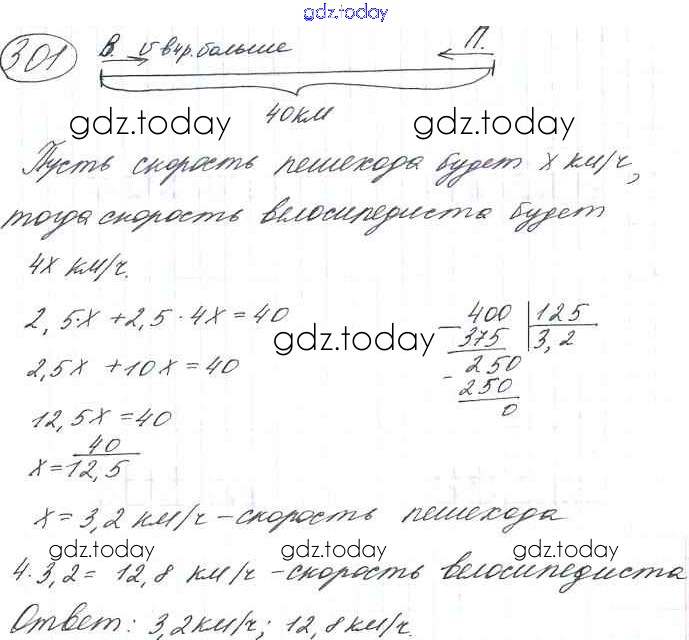 gdz.today
301 В. v в 4р. больше П.
40км
gdz.today gdz.today
Пусть скорость пешехода будет x км/ч,
тогда скорость велосипедиста будет
4x км/ч.
2,5·x + 2,5·4x = 40
gdz.today
400 | 125
- 375 | 3,2
2,5x + 10x = 40
250
- 250
0
12,5x = 40
x = 40/12,5
x = 3,2 км/ч – скорость пешехода
gdz.today gdz.today gdz.today
4·3,2 = 12,8 км/ч – скорость велосипедиста
Ответ: 3,2км/ч; 12,8км/ч.
gdz.today gdz.today gdz.today